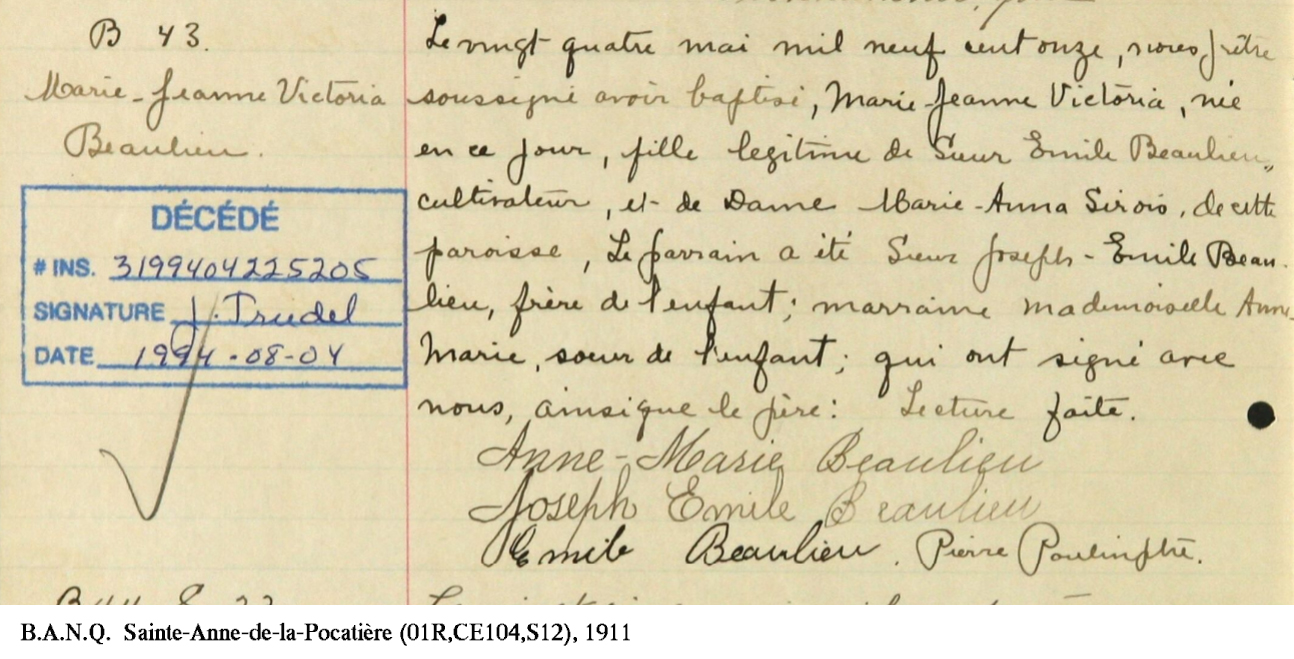 B 43.
Marie-Jeanne Victoria
Beaulieu.
DÉCÉDÉ
# INS. 3199404225205
SIGNATURE J. Trudel
DATE 1994-08-04
Le vingt quatre mai mil neuf cent onze, nous, prêtre
soussigné avoir baptisé, Marie-Jeanne Victoria, née
en ce jour, fille legitime de Sieur Emile Beaulieu,
cultivateur, et de Dame Marie-Anna Sirois, de cette
paroisse, Le parrain a été Sieur Joseph-Emile Beau-
lieu, frère de l'enfant; marraine mademoiselle Anne-
Marie, soeur de l'enfant; qui ont signé avec
nous, ainsique le père: Lecture faite.
Anne-Marie Beaulieu
Joseph Emile Beaulieu
Emile Beaulieu. Pierre Poulin ptre.
B.A.N.Q. Sainte-Anne-de-la-Pocatière (01R,CE104,S12), 1911